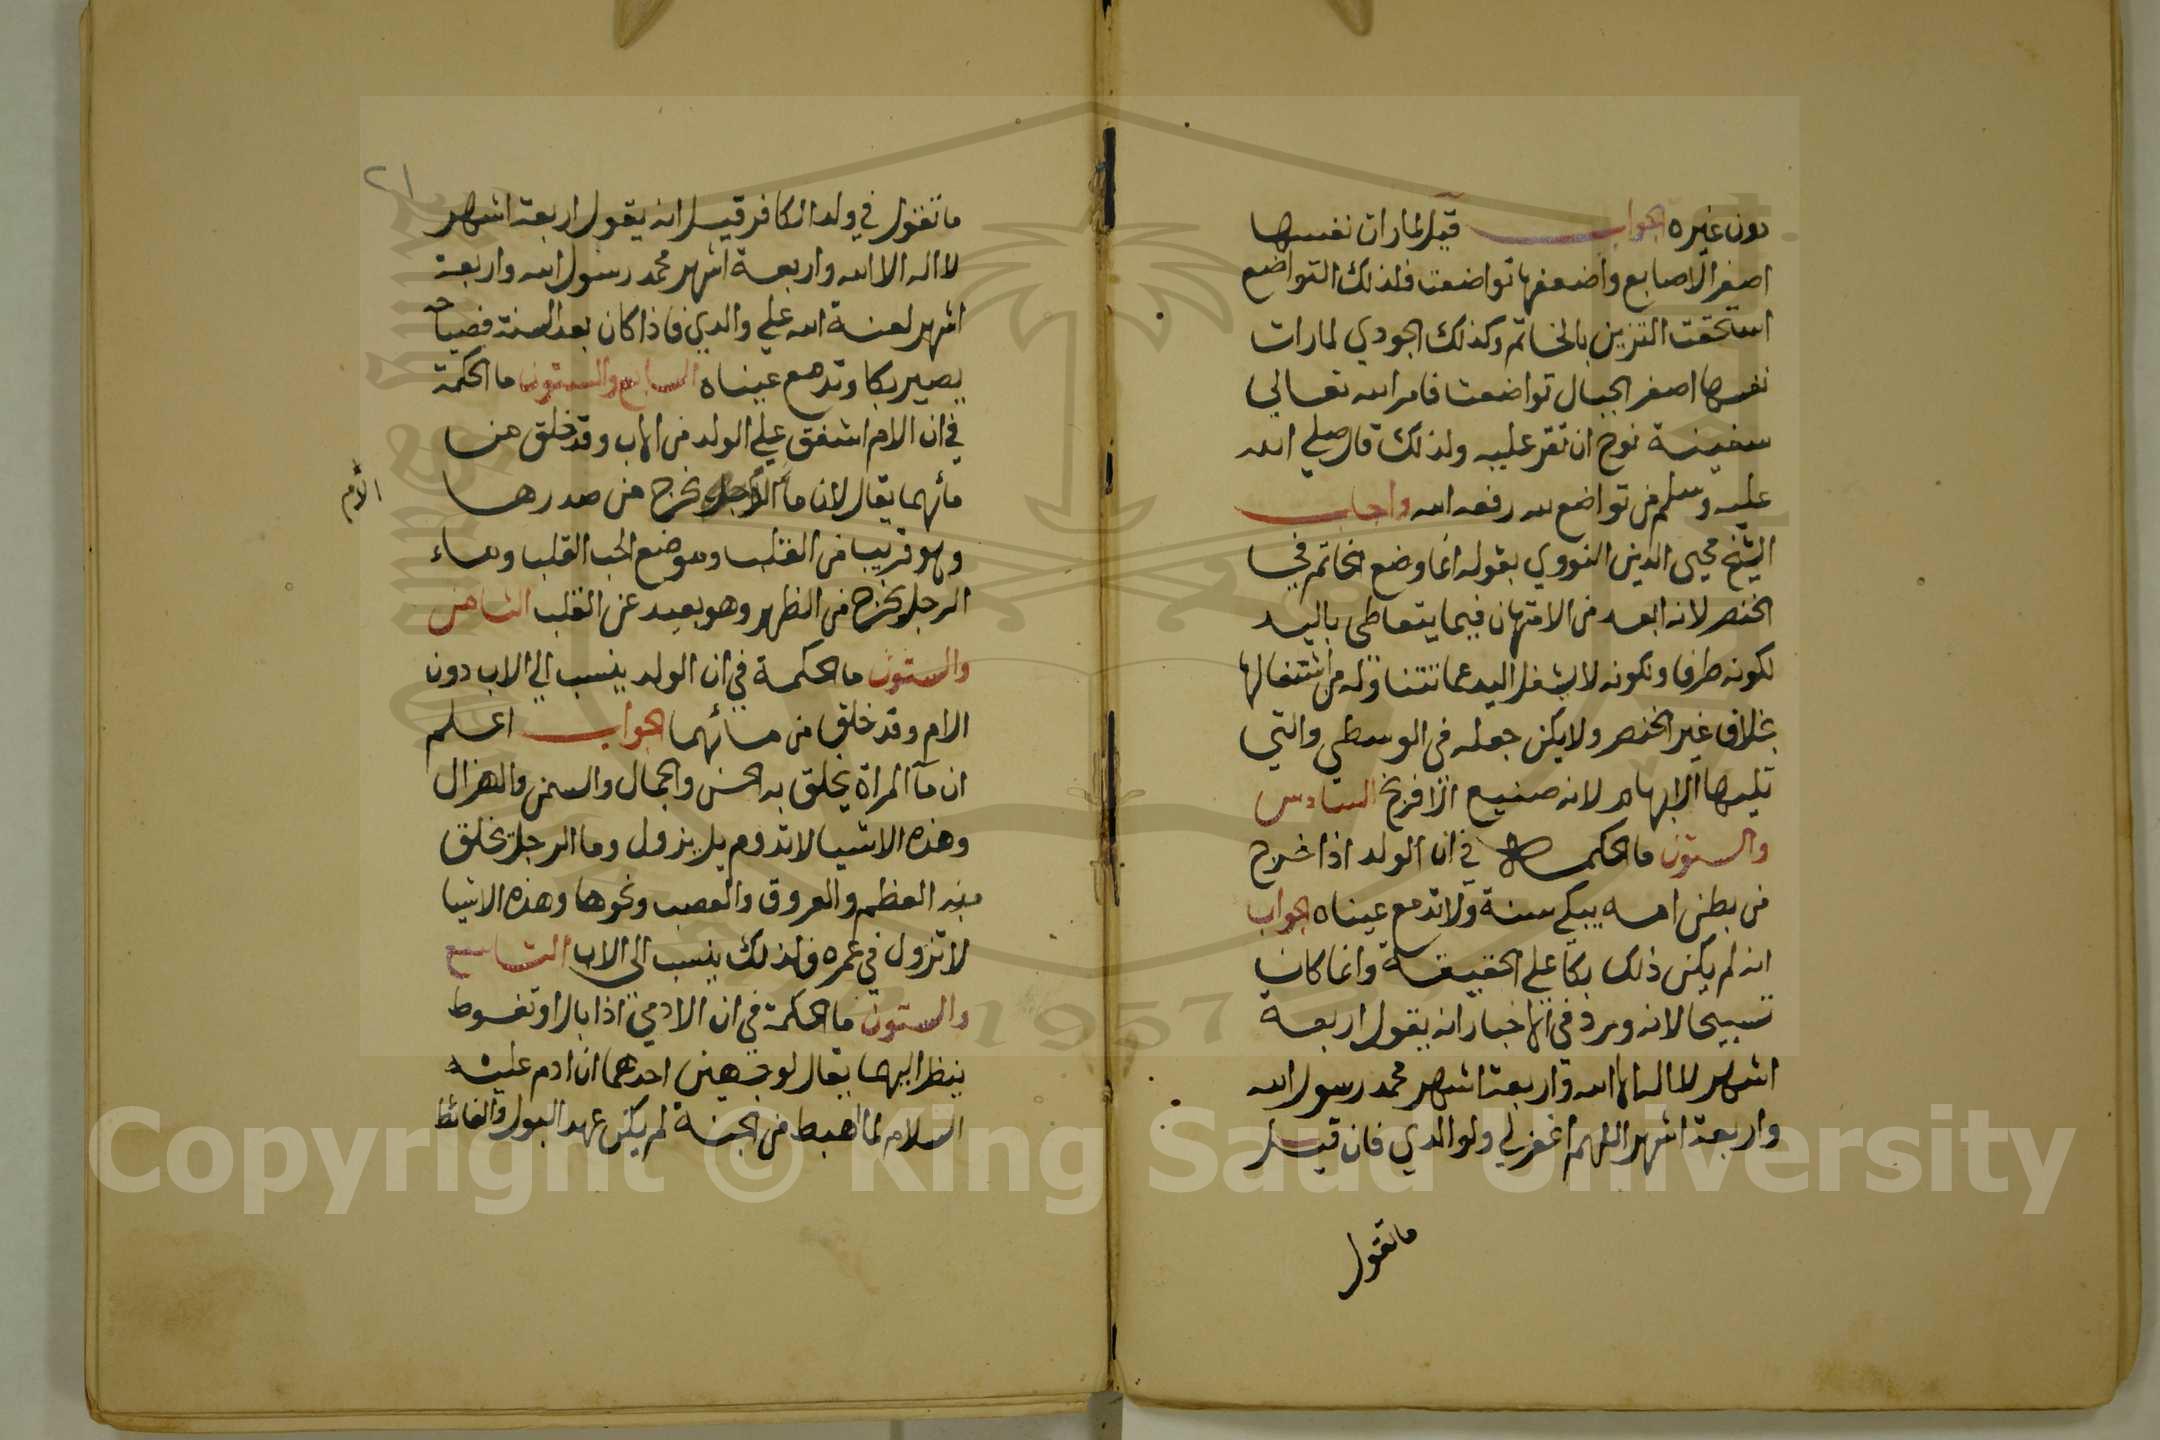 دون غيره الجواب قيل لما رات نفسها
اصغر الاصابع واضعفها تواضعت فلذلك التواضع
استحقت التزين بالخاتم وكذلك الجودي لما رات
نفسها اصغر الجبال تواضعت فامر الله تعالي
سفينة نوح ان تقر عليه ولذلك قال صلي الله
عليه وسلم من تواضع لله رفعه الله واجاب
الشيخ محيي الدين النووي بقوله انما وضع الخاتم في
الخنصر لانه ابعد من الامتهان فيما يتعاطي باليد
لكونه طرفا ولكونه لا يشغل اليد عما تتناوله من اشتغالها
بخلاف غير الخنصر ولا يكن جعله في الوسطي والتي
تليها الابهام لانه صنيع الافرنج السادس
والستون ما الحكمه في ان الولد اذا خرج
من بطن امه يبكي سنة ولا تدمع عيناه الجواب
انه لم يكن ذلك بكا علي الحقيقة وانما كان
تسبيحا لانه ورد في الاخبار انه يقول اربعة
اشهر لا اله الا الله واربعة اشهر محمد رسول الله
واربعة اشهر اللهم اغفر لي ولوالدي فان قيل
ما تقول
٢١
ما تقول في ولد الكافر قيل انه يقول اربعة اشهر
لا اله الا الله واربعة اشهر محمد رسول الله واربعة
اشهر لعنة الله علي والدي فاذا كان بعد السنة فصياحه
يصير بكا وتدمع عيناه السابع والستون ما الحكمة
في ان الام اشفق علي الولد من الاب وقد خلق من
مائهما يقال لان ما يخرج من صدرها
الام
وهو قريب من القلب وموضع الحب القلب وماء
الرجل يخرج من الظهر وهو بعيد عن القلب الثامن
والستون ما الحكمة في ان الولد ينسب الي الاب دون
الام وقد خلق من مائهما الجواب اعلم
ان مآ المراة يخلق به الحسن والجمال والسمن والهزال
وهذه الاشيا لا تدوم بل يزول وما الرجل يخلق
منه العظم والعروق والعصب ونحوها وهذه الاشيا
لا تزول في عمره فلذلك ينسب الى الاب التاسع
والستون ما الحكمة في ان الادمي اذا بال او تغوط
ينظر اليها يقال لوجهين احدهما ان ادم عليه
السلام لما اهبط من الجنة لم يكن عهد البول والغائط
1957
Copyright © King Saud University